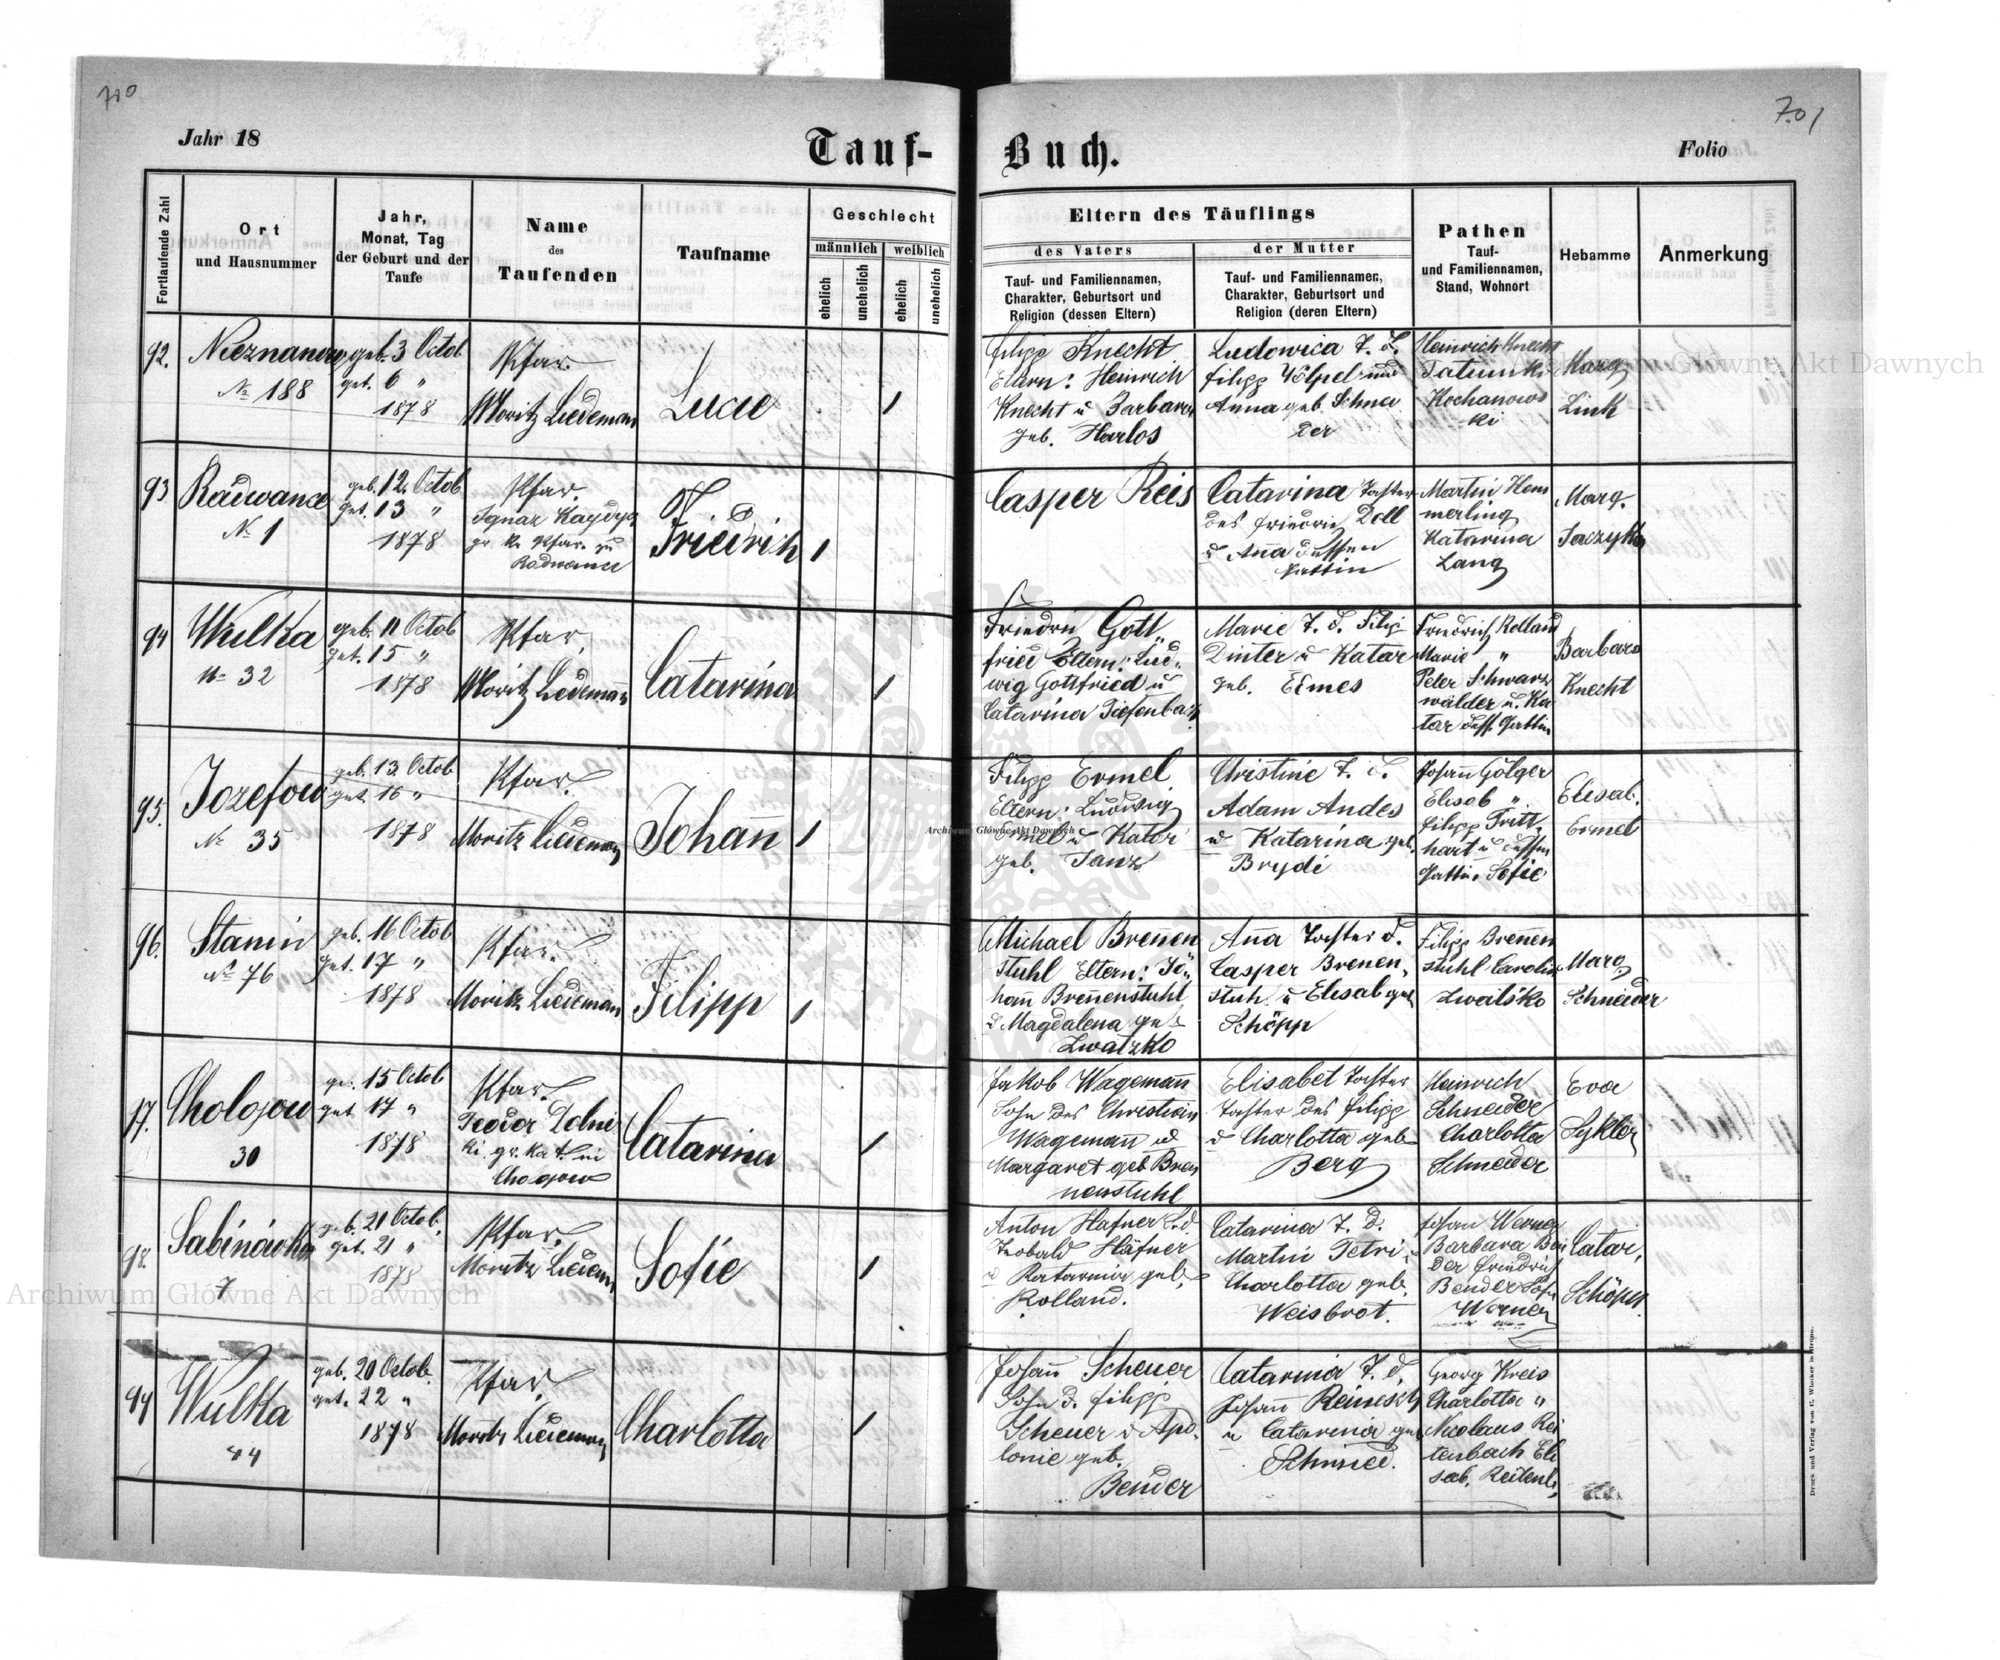 700
701
Jahr 18
Tauf-
Buch.
Folio
Fortlaufende Zahl
Ort
und Hausnummer
Jahr,
Monat, Tag
der Geburt und der
Taufe
Name
des
Taufenden
Taufname
Geschlecht
männlich
weiblich
ehelich
unehelich
ehelich
unehelich
Eltern des Täuflings
des Vaters
Tauf- und Familiennamen,
Charakter, Geburtsort und
Religion (dessen Eltern)
der Mutter
Tauf- und Familiennamen,
Charakter, Geburtsort und
Religion (deren Eltern)
Pathen
Tauf-
und Familiennamen,
Stand, Wohnort
Hebamme
Anmerkung
92.
Nieznanow
No 188
geb. 3 Octob
get. 6 "
1878
Pfar.
Moritz Liedeman
Lucie
Filipp Knecht
Eltern: Heinrich
Knecht u Barbara
geb. Harlos
Ludowica T. d.
Filipp Völpel und
Anna geb. Schna
der
Heinrich Knecht
Kochanows
ki
Marg
Link
93
Radwance
No 1
geb. 12. Octob
get. 13 "
1878
Pfar.
Ignaz
gr. k. Pfar. zu
Radwance
Friedrich
Casper Reis
Catarina Tochter
des Friedrich Doll
u Anna dessen
Gattin
Martin Hem
merling
Katarina
Lang
Marg.
94
Wulka
No 32
geb. 11 Octob
get. 15 "
1878
Pfar.
Moritz Liedemañ
Catarina
Friedrich Gott
fried Eltern: Lud-
wig Gottfried u
Catarina Tiefenbach
Marie T. d. Filip
Dinter u Katar
geb. Ermes
Friedrich Rolland
Marie "
Peter Schwarz
wälder u. Ka
tar dess. Gattin
Barbara
Knecht
95.
Jozefow
No 35
geb. 13. Octob
get. 16 "
1878
Pfar.
Moritz Liedeman
Johañ
Filipp Ermel
Eltern: Ludwig
Ermel u Katar
geb. Janz
Christine T. d.
Adam Andes
u Katarina geb.
Brydi
Johañ Gölger
Elisab "
Filipp Tritt-
hart u dessen
Gattin Sofie
Elisab.
Ermel
96.
Stanin
No 76
geb. 16 Octob
get. 17 "
1878
Pfar.
Moritz Liedeman
Filipp
Michael Breñen
stuhl Eltern: Jo-
hañ Breñenstuhl
u Magdalena geb
Zwatzko
Aña Tochter d.
Casper Brenen-
stuh. u Elisab geb
Schöpp
Filipp Breñen
stuhl Carolin
Marg.
Schneider
97.
Cholojow
30
geb. 15 Octob
get 17 "
1878
Pfar.
Teodor Dolni
ki. gr. kat. in
Catarina
Jakob Wagemañ
Sohn des Christian
Wagemañ u
Margaret geb Bren
nenstuhl
Elisabet Tochter
Tochter des Filipp
u Charlotta geb
Berg
Heinrich
Schneider
Charlotta
Schneider
Eva
98.
Sabinówka
7
geb. 21 Octob.
get. 21 "
1878
Pfar.
Moritz Liedem
Sofie
Anton Hafner S. d.
Teobald Häfner
u Katarina geb.
Rolland.
Catarina T. d.
Martin Petri u
Charlotta geb.
Weisbrot.
Johan Werner
Barbara Ben
der Friedrich
Bender Sofie
Werner
Catar.
99
Wulka
44
geb. 20 Octob.
get. 22 "
1878
Pfar.
Moritz Liedeman
Charlotta
Johañ Scheuer
Sohn d. Filipp
Scheuer u Apo-
lonie geb.
Bender
Catarina T. d.
Johañ Reinesch
u Catarina geb
Schmied.
Georg Kreis
Charlotta "
Nicolaus Rei
tenbach Eli
sab. Reitenb.
Druck und Verlag von C. Winiker in Brünn.
Archiwum Główne Akt Dawnych
Archiwum Główne Akt Dawnych
Archiwum Główne Akt Dawnych